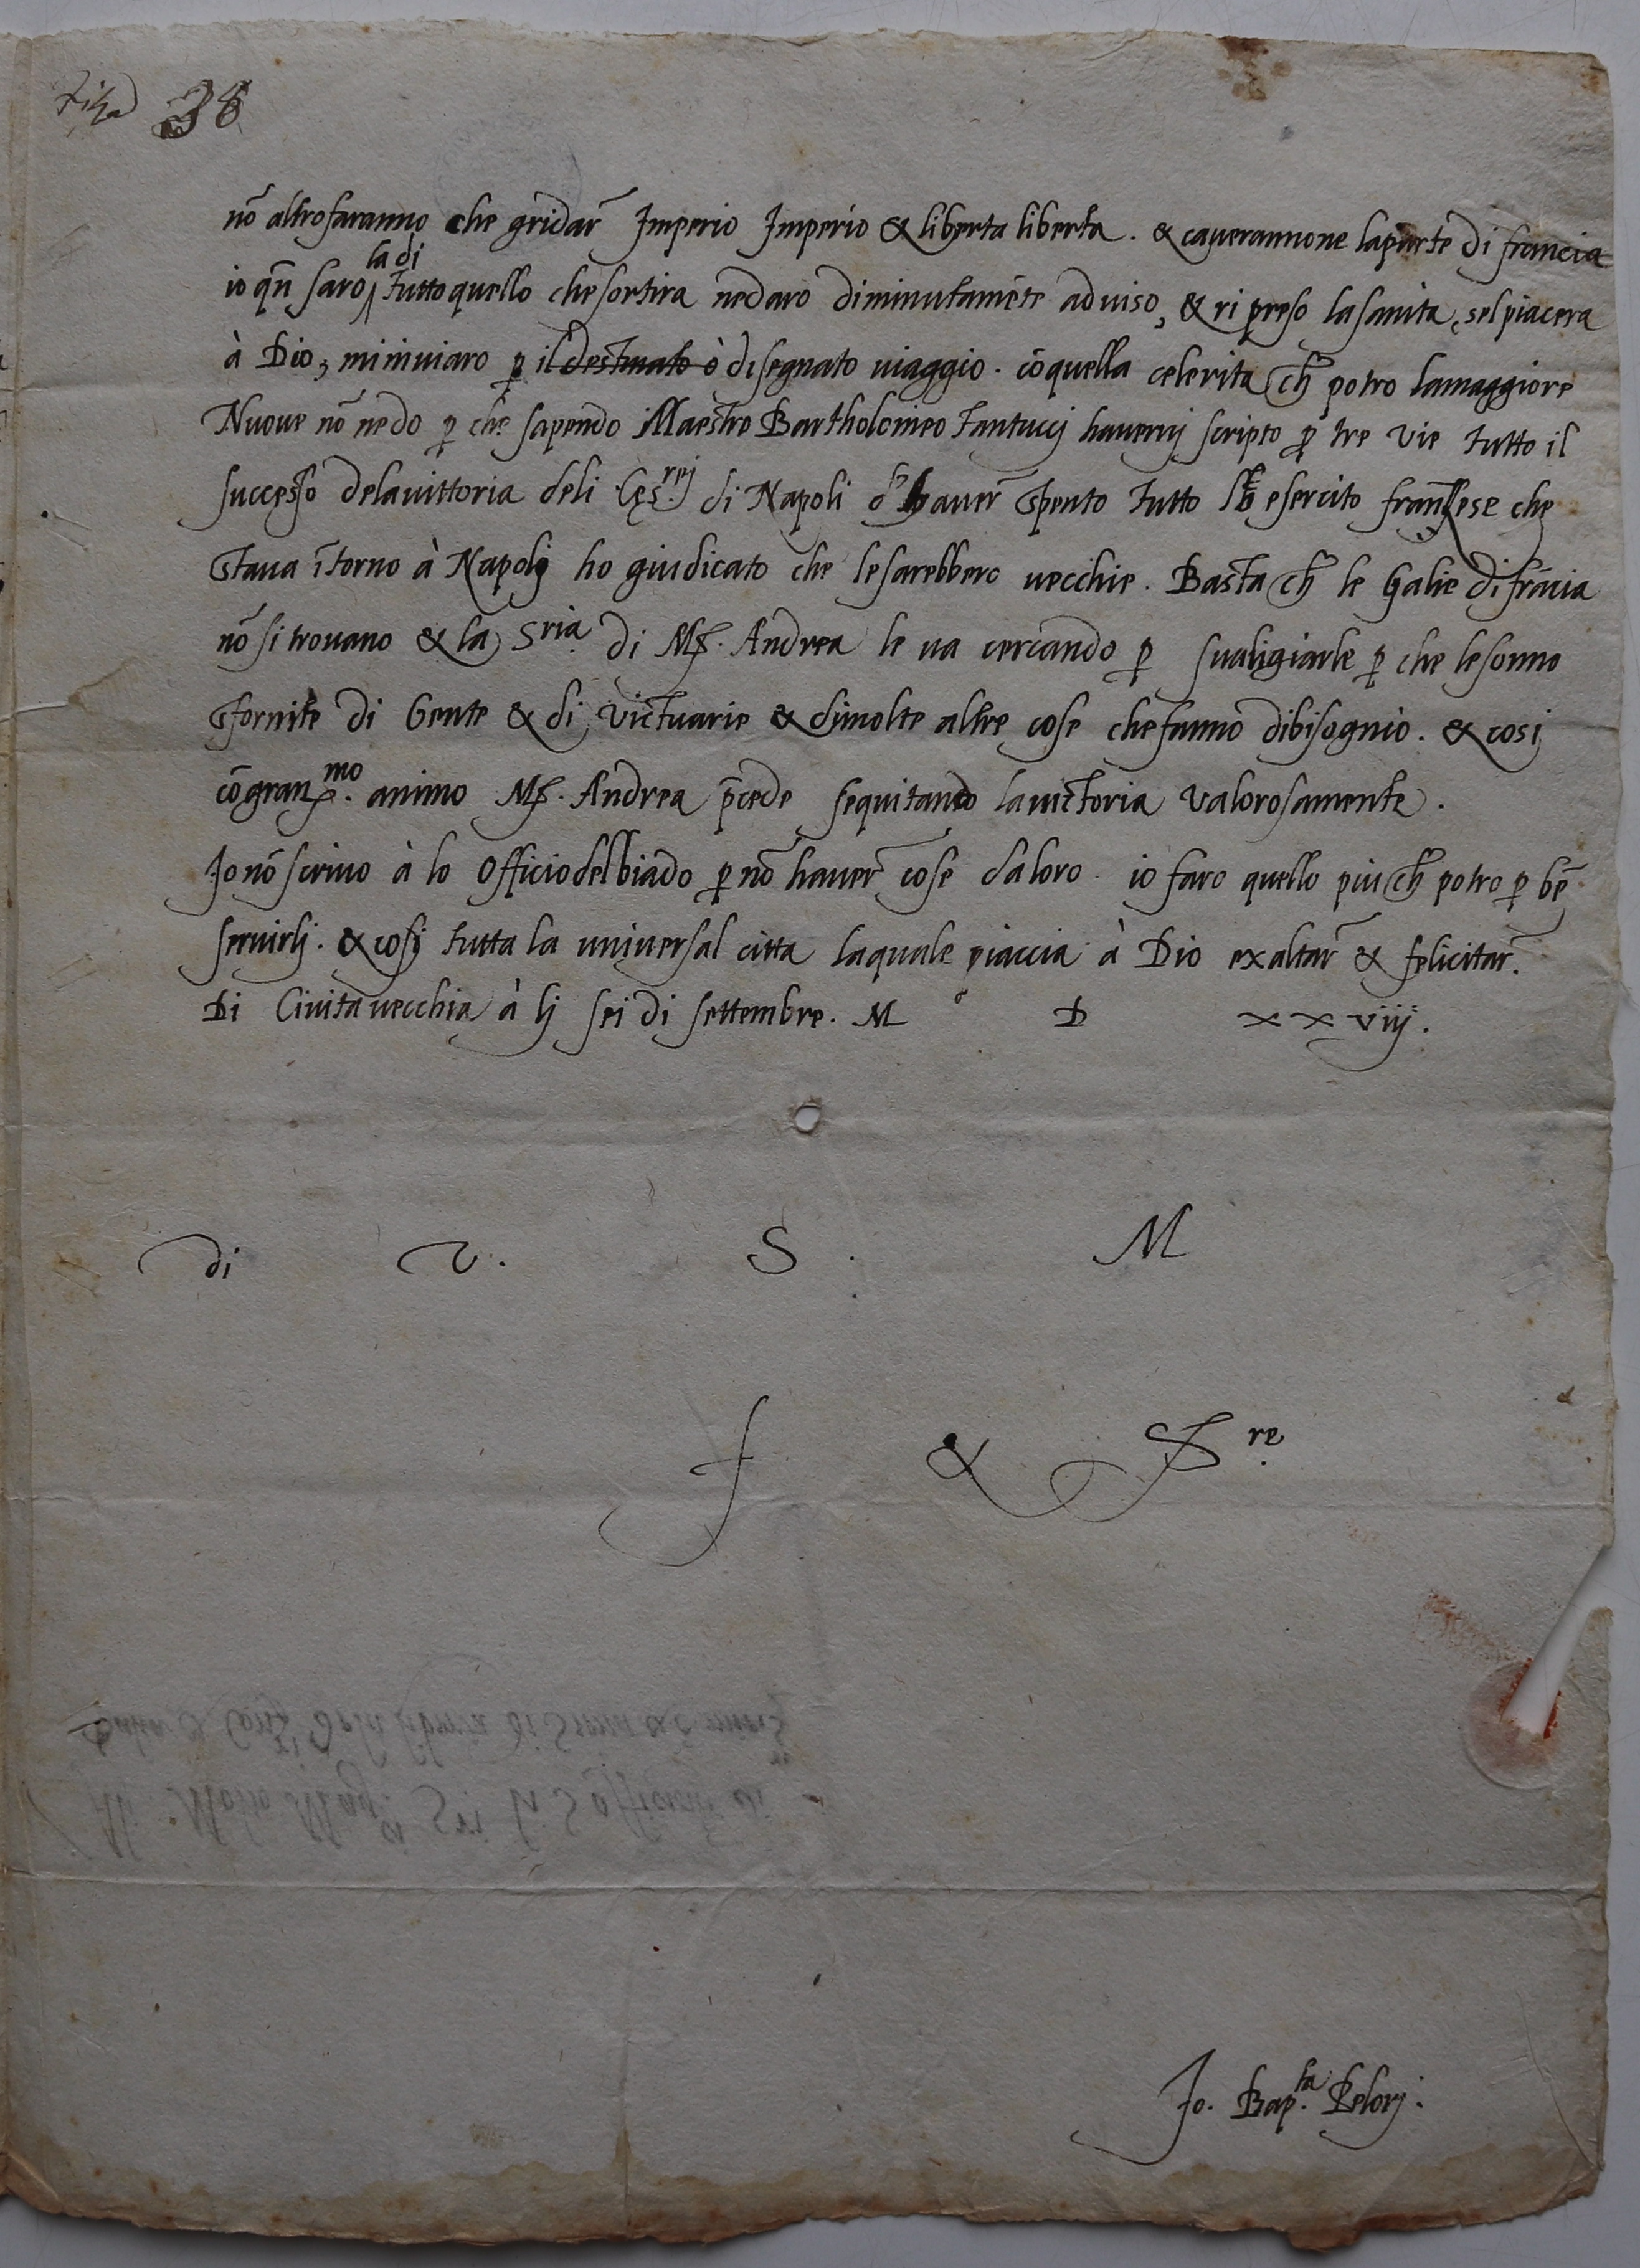 Filza 38
nō altro faranno che gridar̄ Imperio Imperio & liberta liberta. & caverannone la parte di francia
io qn̄ saro la di tutto quello che sortira ne daro diminutamēte adviso, & ripreso la sanita, sel piacera
à Dio, mi inviaro ꝑ il destinato ò disegnato viaggio. cō quella celerita ch̄ potro la maggiore
Nuove nō ne do ꝑ che sapendo Maestro Bartholomeo Fantuccj havervj scripto ꝑ tre vie tutto il
successo dela vittoria deli Ces.rej di Napoli d' haver̄ spento tutto esercito franzese che
stava ītorno à Napolj ho giudicato che le sarebbero vecchie. Basta ch̄ le Galie di frācia
nō si trovano & la S.ria di Mſ. Andrea le va cercando ꝑ svaligiarle ꝑ che le sonno
sfornite di Gente & di victuarie & di molte altre cose che fanno di bisognio. & cosi
cō gran.mo animo Mſ. Andrea p̄cede sequitando la victoria valorosamente.
Io nō scrivo à lo Officio del biado ꝑ nō haver̄ cose da loro. io faro quello piu ch̄ potro ꝑ bē
servirlj. & cosj tutta la universal citta la quale piaccia à Dio exaltar̄ & felicitar̄.
Di Civita vecchia à lj sei di settembre. M° D xxviij.
di V. S. M
f & S.re
Jo. Bap.ta Pelorj.